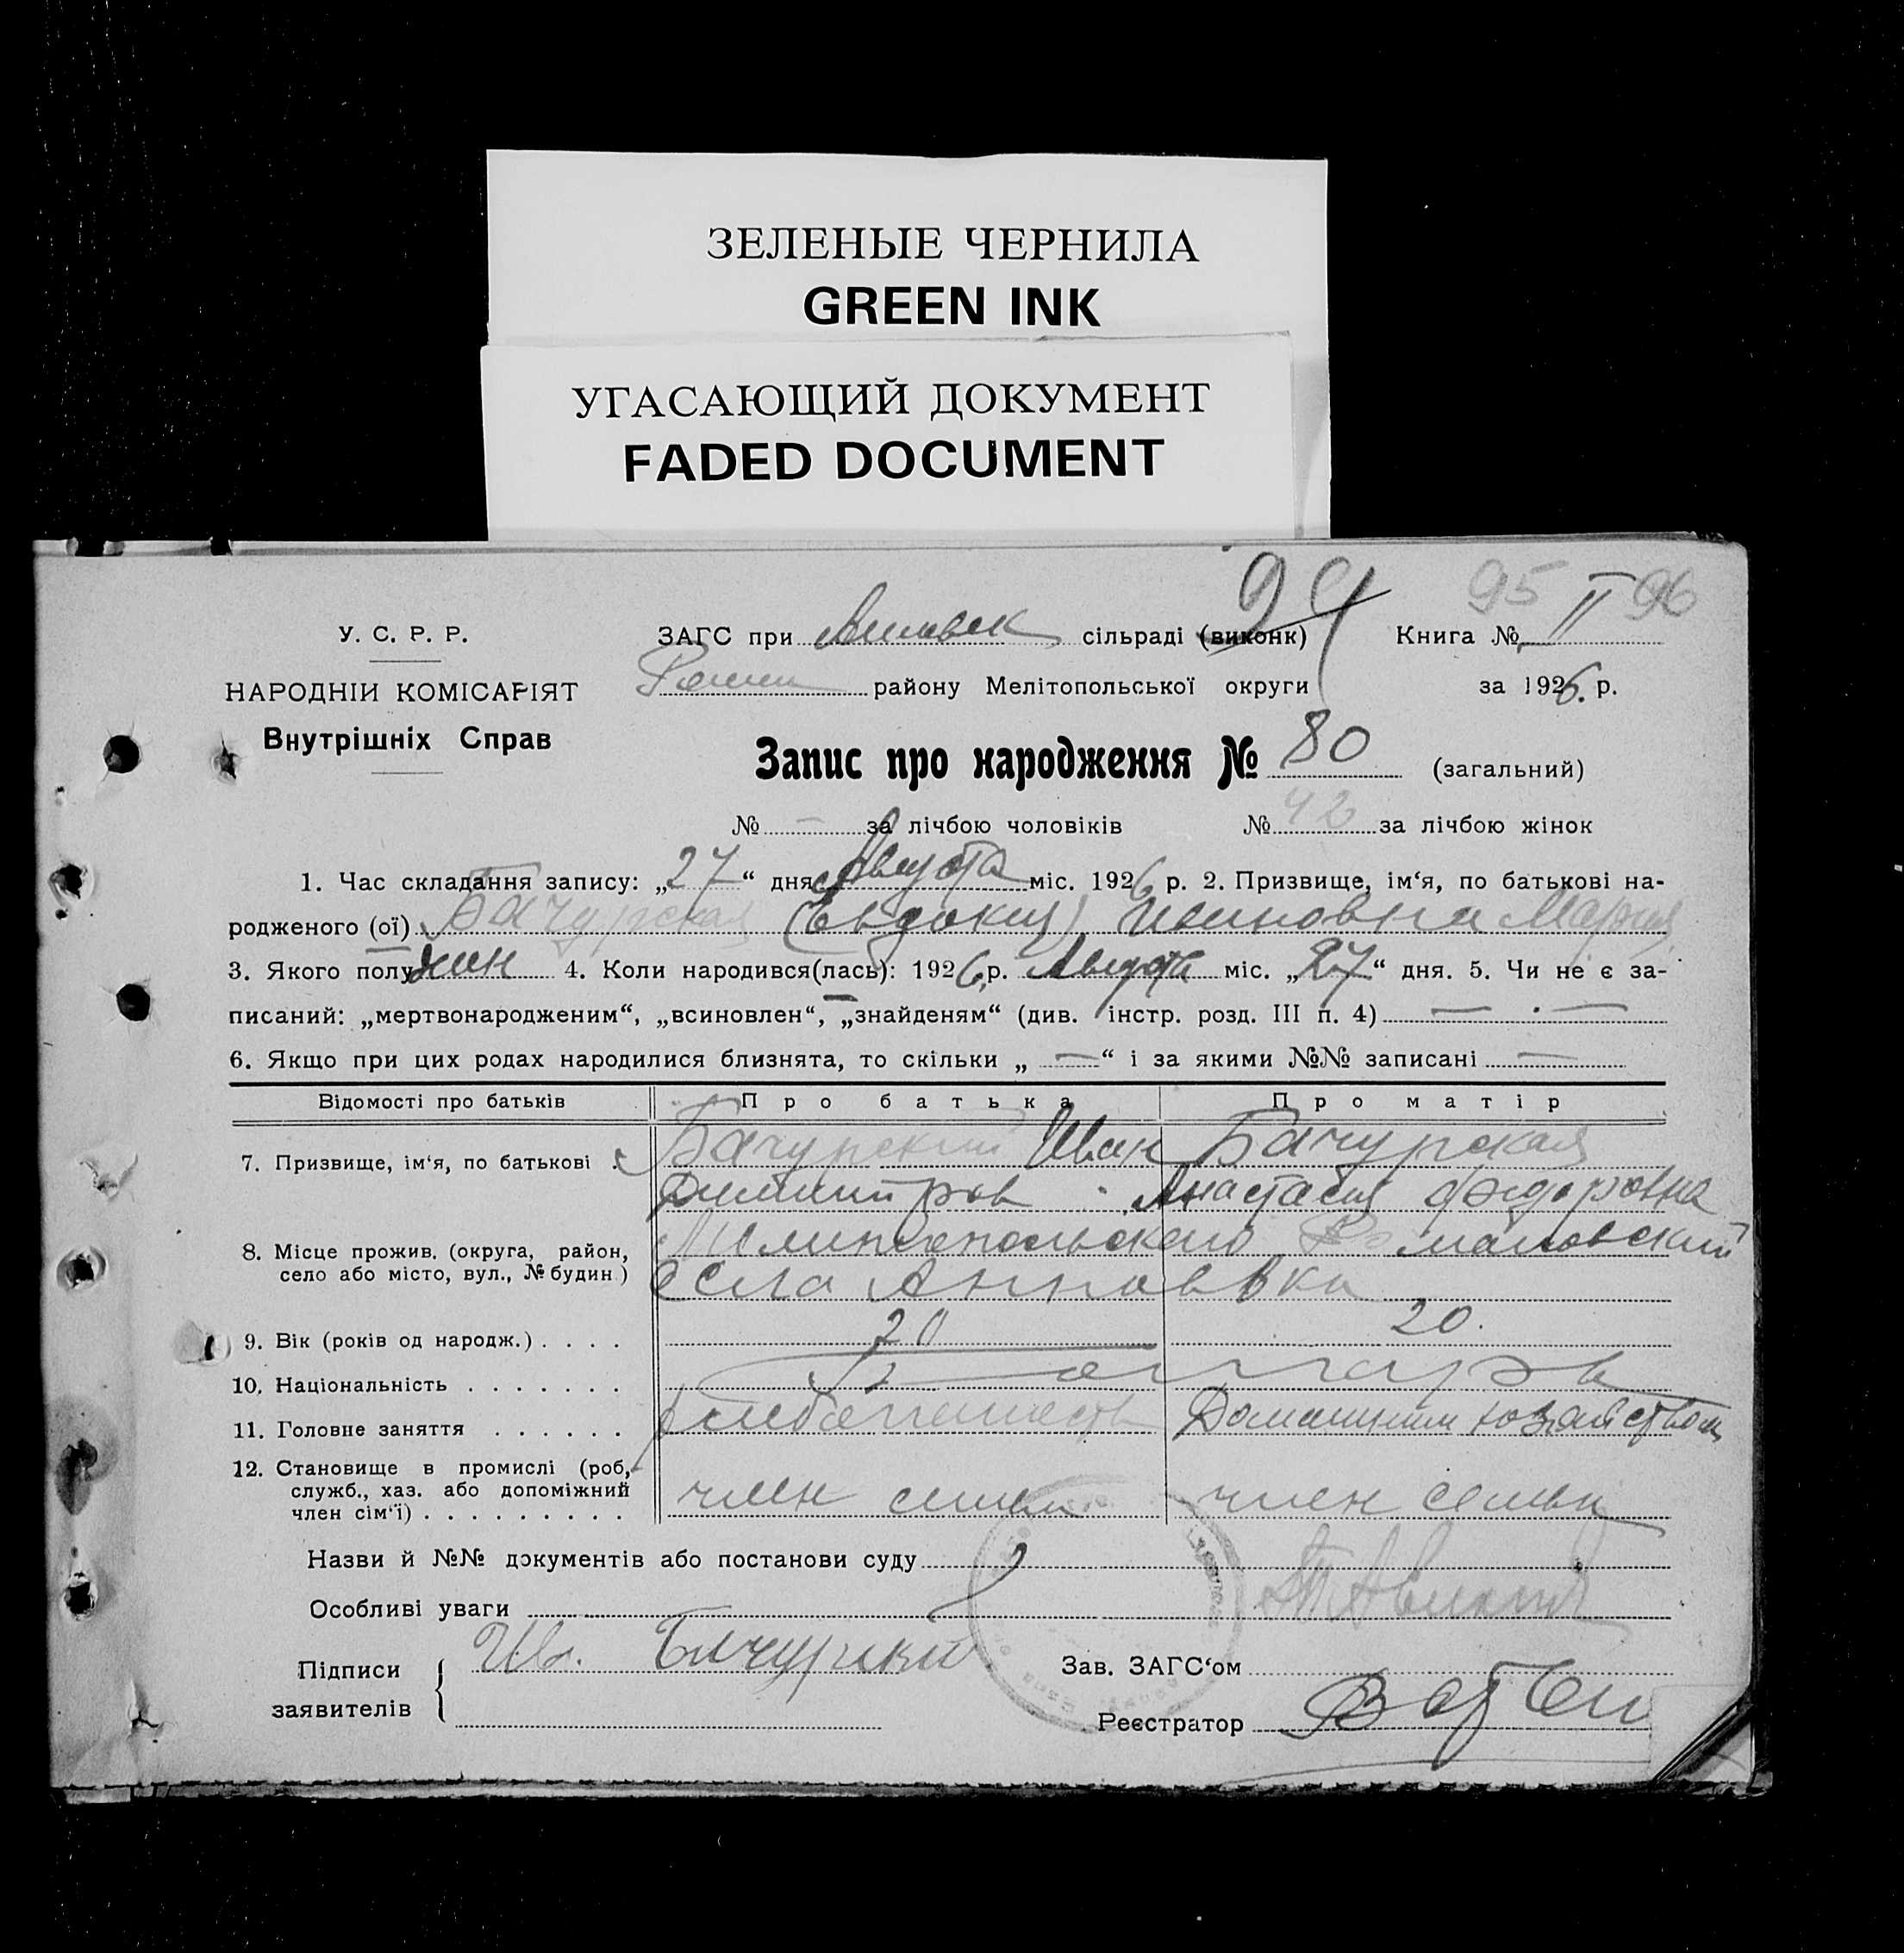 ЗЕЛЕНЫЕ ЧЕРНИЛА
GREEN INK
УГАСАЮЩИЙ ДОКУМЕНТ
FADED DOCUMENT
94 95 96
У. С. Р. Р.
НАРОДНІЙ КОМІСАРІЯТ
Внутрішніх Справ
ЗАГС при сільраді (виконк) Книга № II
району Мелітопольської округи за 1926 р.
Запис про народження № 80 (загальний)
№ — за лічбою чоловіків № 42 за лічбою жінок
1. Час складання запису: „27“ дня Августа міс. 1926 р. 2. Призвище, ім‘я, по батькові на-
родженого (ої) Бачурская (Евдокия) Ивановна Мария
3. Якого полу жин 4. Коли народився(лась): 1926 р. Августа міс. „27“ дня. 5. Чи не є за-
писаний: „мертвонародженим“, „всиновлен“, „знайденям“ (див. інстр. розд. III п. 4) — —
6. Якщо при цих родах народилися близнята, то скільки „ — “ і за якими №№ записані —
Відомості про батьків Про батька Про матір
7. Призвище, ім‘я, по батькові Бачурский Иван Бачурская
Анастасия Федоровна
8. Місце прожив. (округа, район,
село або місто, вул., № будин.)
села Анновка
9. Вік (років од народж.) . . . . 20 20.
10. Національність . . . . . . .
11. Головне заняття . . . . . . Домашним хозяйством
12. Становище в промислі (роб,
служб., хаз. або допоміжний
член сім‘ї) . . . . . . . . . член семьи член семьи
Назви й №№ документів або постанови суду
Особливі уваги
Підписи
заявителів
Ив. Бачурский
Зав. ЗАГС‘ом
Реєстратор